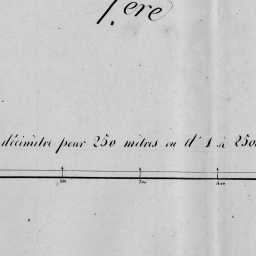 1ère
décimètre pour 250 mètres ou d' 1 à 250